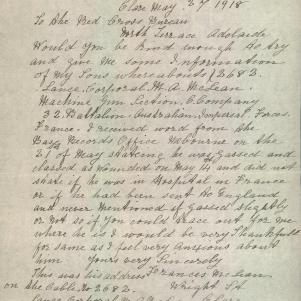 Clare May 27 1918
To The Red Cross Bureau
North Terrace Adelaide
Would you be kind enough to try
and give me some Information
of My Sons whereabouts 12682.
Lance Corporal. A. McLean.
Machine Gun Section. C. Company
32. Battalion. Australian Imperial Forces.
France. I received word from the
Base Records Office Melbourne on the
21st of May stating he was gassed and
classed as Wounded on May 14 and did not
state if he was in Hospital in France
or if he had been sent to England
and never Mentioned if gassed slightly
or Not so if you could trace out for me
where he is I would be very Thankfull
for same as I feel very Anxious about
him yours very Sincerely
This was his address Frances McLean
on the Cable No 2682. Wright St
Lance Corporal Clare